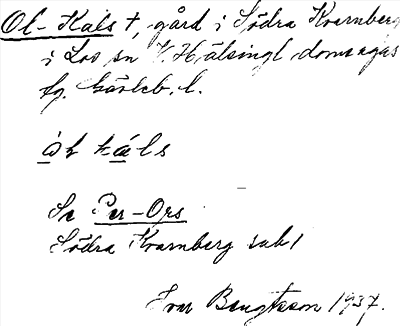 Ol-Kals †, gård i Södra Kvarnberg
i Los sn V. Hälsingl. domsagas
fg. Gävleb. l.
òl kàls
Se Per-Ors
Södra Kvarnberg sub 1
Ivar Bengtsson 1937.